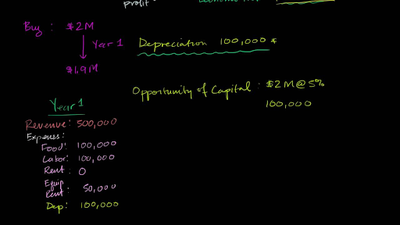 profit
Buy: $2M
Year 1
$1.9M
Depreciation 100,000 *
Opportunity of Capital: $2M @ 5%
100,000
Year 1
Revenue: 500,000
Expenses:
Food: 100,000
Labor: 100,000
Rent: 0
Equip
Rent: 50,000
Dep: 100,000